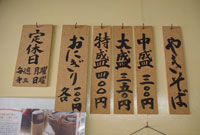 やきそば
中盛 三〇〇円
大盛 三五〇円
特盛 四〇〇円
おにぎり
各 一〇〇円
定休日